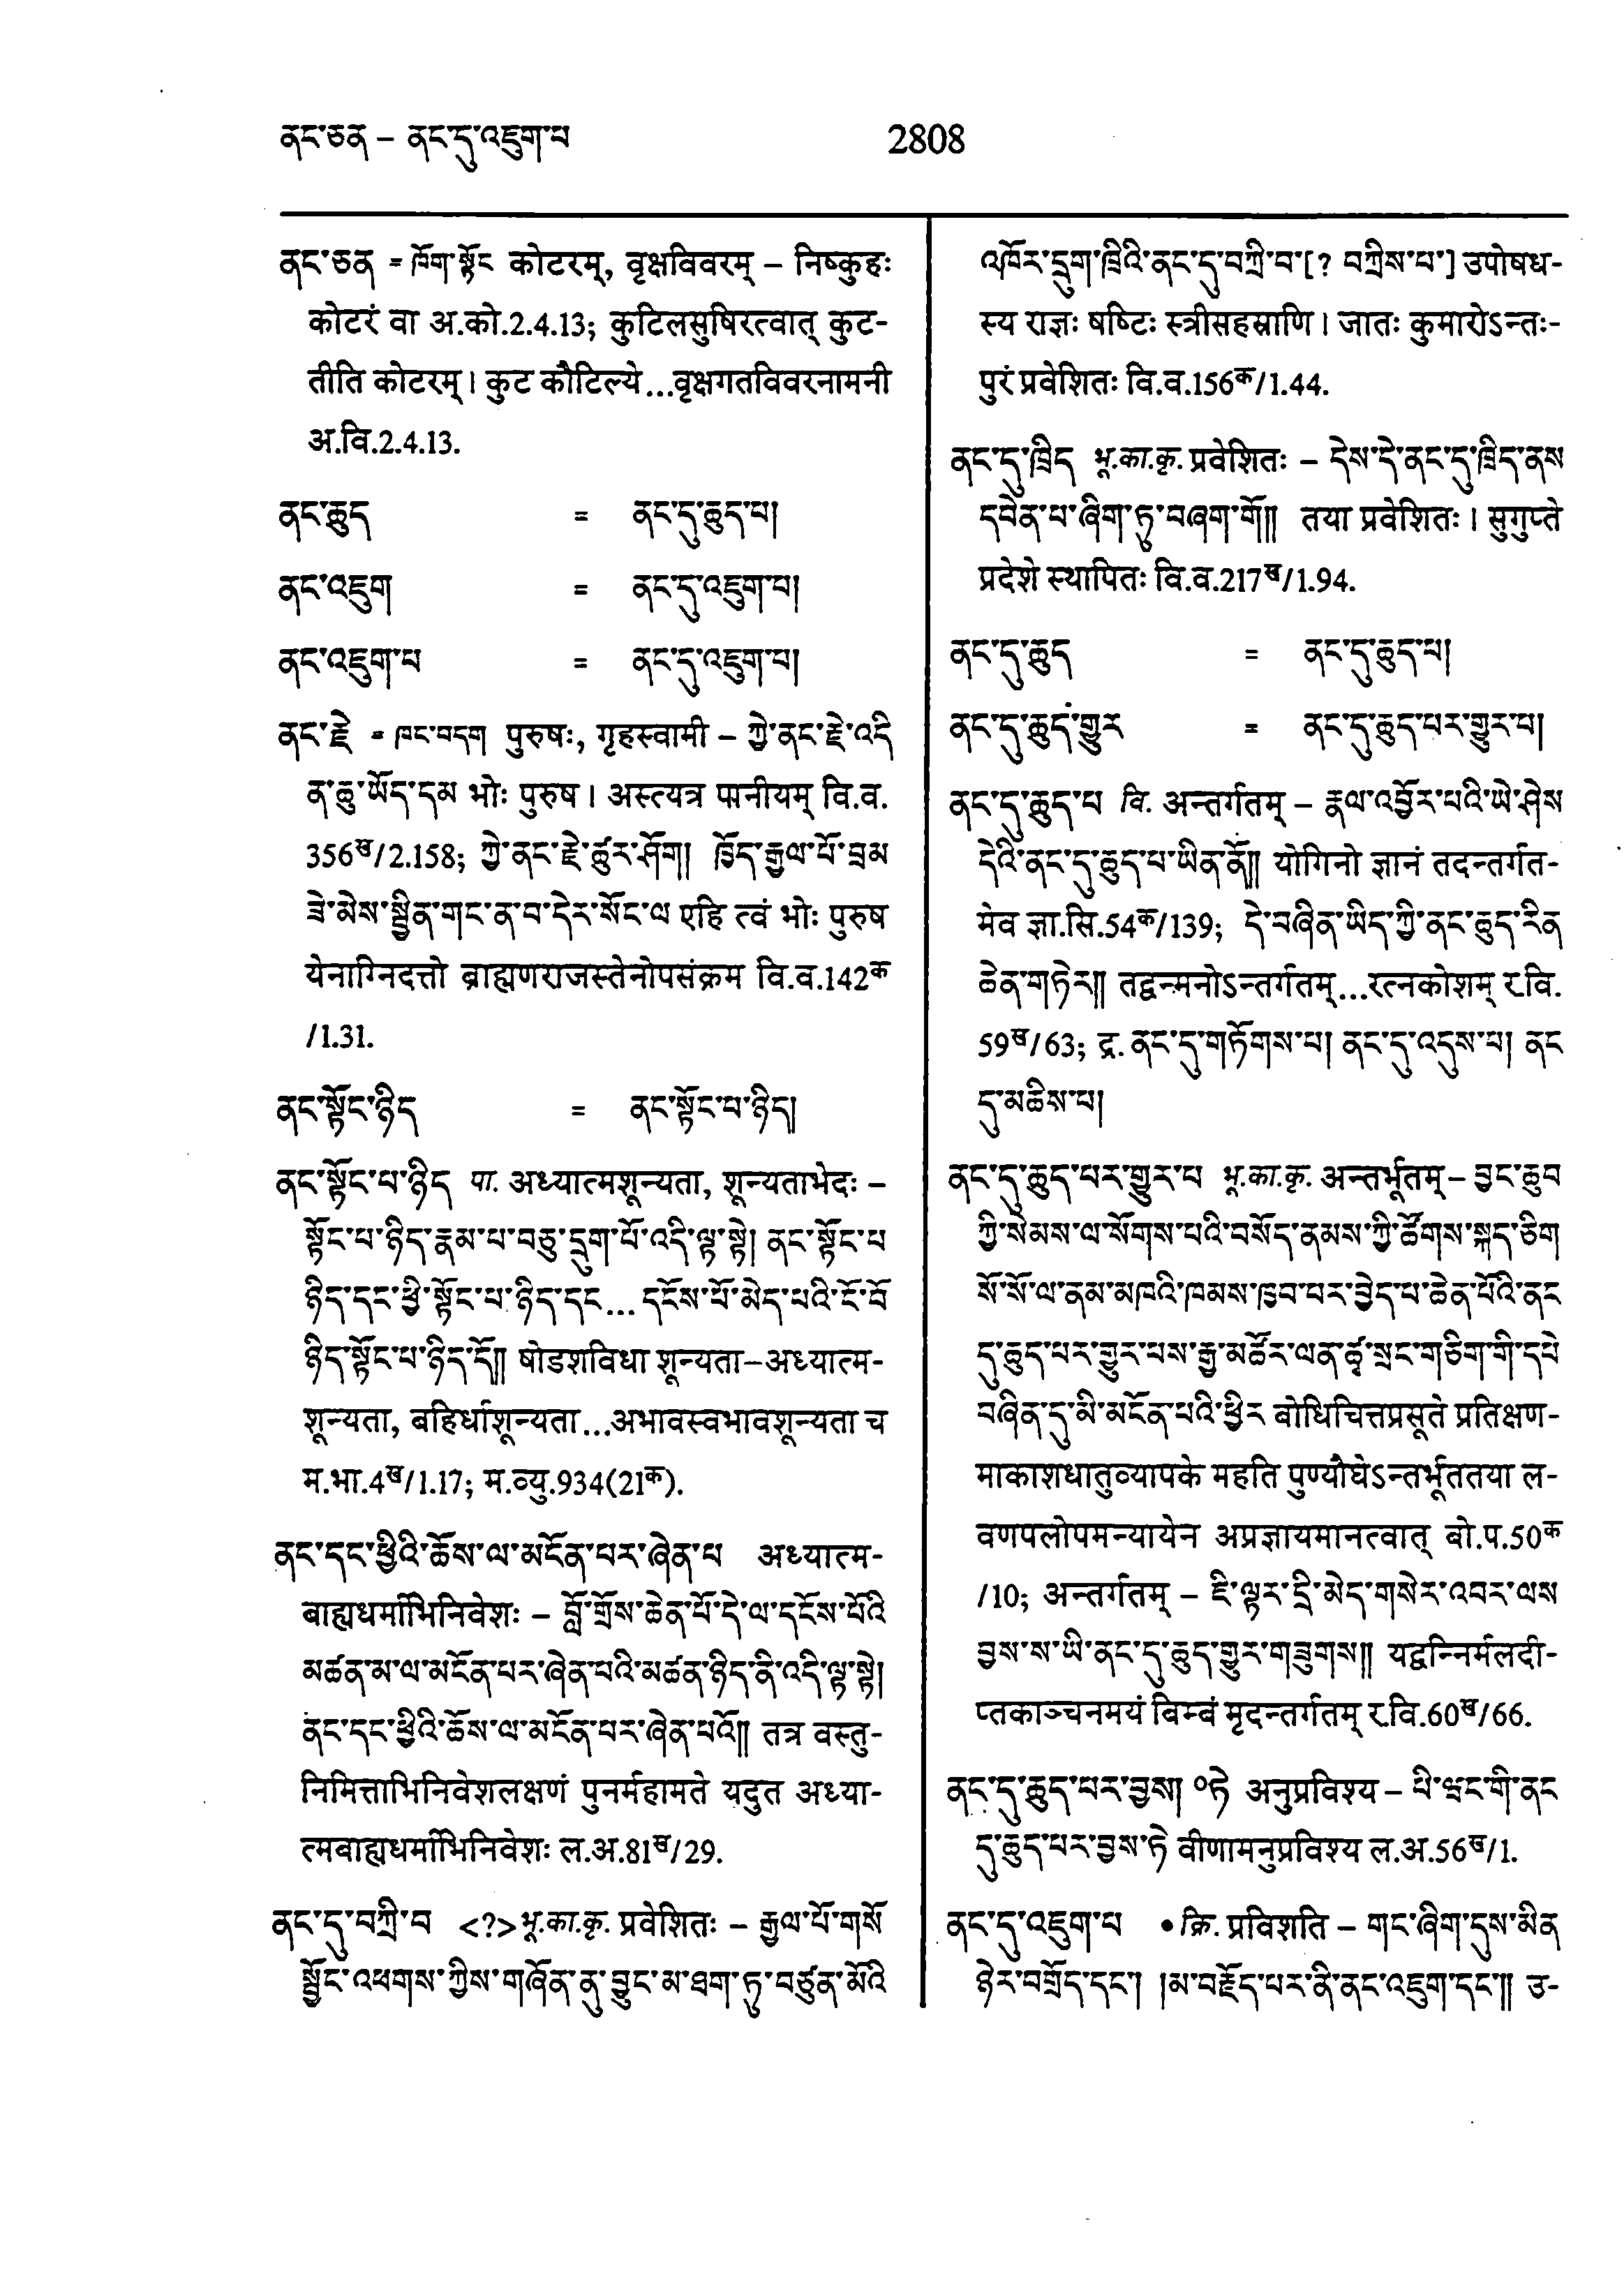 ནང་ཅན – ནང་དུ་འཇུག་པ
2808
ནང་ཅན = ཁོག་སྟོང कोटरम्, वृक्षविवरम् – निष्कुहः
कोटरं वा अ.को.2.4.13; कुटिलसुषिरत्वात् कुट-
तीति कोटरम्। कुट कौटिल्ये...वृक्षगतविवरनामनी
अ.वि.2.4.13.
ནང་ཆུད = ནང་དུ་ཆུད་པ།
ནང་འཇུག = ནང་དུ་འཇུག་པ།
ནང་འཇུག་པ = ནང་དུ་འཇུག་པ།
ནང་རྗེ = ཁང་བདག पुरुषः, गृहस्वामी – ཀྱེ་ནང་རྗེ་འདི
ན་ཆུ་ཡོད་དམ भोः पुरुष। अस्त्यत्र पानीयम् वि.व.
356ख/2.158; ཀྱེ་ནང་རྗེ་ཚུར་ཤོག། ཁྱོད་རྒྱལ་པོ་བྲམ
ཟེ་མེས་སྦྱིན་གང་ན་བ་དེར་སོང་ལ एहि त्वं भोः पुरुष
येनाग्निदत्तो ब्राह्मणराजस्तेनोपसंक्रम वि.व.142क
/1.31.
ནང་སྟོང་ཉིད = ནང་སྟོང་པ་ཉིད།
ནང་སྟོང་པ་ཉིད पा. अध्यात्मशून्यता, शून्यताभेदः –
སྟོང་པ་ཉིད་རྣམ་པ་བཅུ་དྲུག་པོ་འདི་ལྟ་སྟེ། ནང་སྟོང་པ
ཉིད་དང་ཕྱི་སྟོང་པ་ཉིད་དང... དངོས་པོ་མེད་པའི་ངོ་བོ
ཉིད་སྟོང་པ་ཉིད་དོ།། षोडशविधा शून्यता–अध्यात्म-
शून्यता, बहिर्धाशून्यता...अभावस्वभावशून्यता च
म.भा.4ख/1.17; म.व्यु.934(21क).
ནང་དང་ཕྱིའི་ཆོས་ལ་མངོན་པར་ཞེན་པ अध्यात्म-
बाह्यधर्माभिनिवेशः – བློ་གྲོས་ཆེན་པོ་དེ་ལ་དངོས་པོའི
མཚན་མ་ལ་མངོན་པར་ཞེན་པའི་མཚན་ཉིད་ནི་འདི་ལྟ་སྟེ།
ནང་དང་ཕྱིའི་ཆོས་ལ་མངོན་པར་ཞེན་པའོ།། तत्र वस्तु-
निमित्ताभिनिवेशलक्षणं पुनर्महामते यदुत अध्या-
त्मबाह्यधर्माभिनिवेशः ल.अ.81ख/29.
ནང་དུ་བཀྲི་བ <?> भू.का.कृ. प्रवेशितः – རྒྱལ་པོ་གསོ
སྦྱོང་འཕགས་ཀྱིས་གཞོན་ནུ་བྱུང་མ་ཐག་ཏུ་བཙུན་མོའི
འཁོར་དྲུག་ཁྲིའི་ནང་དུ་བཀྲི་བ་[? བཀྲིས་པ་] उपोषध-
स्य राज्ञः षष्टिः स्त्रीसहस्राणि। जातः कुमारोऽन्तः-
पुरं प्रवेशितः वि.व.156क/1.44.
ནང་དུ་ཁྲིད भू.का.कृ. प्रवेशितः – དེས་དེ་ནང་དུ་ཁྲིད་ནས
དབེན་པ་ཞིག་ཏུ་བཞག་གོ།། तया प्रवेशितः। सुगुप्ते
प्रदेशे स्थापितः वि.व.217ख/1.94.
ནང་དུ་ཆུད = ནང་དུ་ཆུད་པ།
ནང་དུ་ཆུད་གྱུར = ནང་དུ་ཆུད་པར་གྱུར་པ།
ནང་དུ་ཆུད་པ वि. अन्तर्गतम् – རྣལ་འབྱོར་པའི་ཡེ་ཤེས
དེའི་ནང་དུ་ཆུད་པ་ཡིན་ནོ།། योगिनो ज्ञानं तदन्तर्गत-
मेव ज्ञा.सि.54क/139; དེ་བཞིན་ཡིད་ཀྱི་ནང་ཆུད་རིན
ཆེན་གཏེར།། तद्वन्मनोऽन्तर्गतम्...रत्नकोशम् र.वि.
59ख/63; द्र. ནང་དུ་གཏོགས་པ། ནང་དུ་འདུས་པ། ནང
དུ་མཆིས་པ།
ནང་དུ་ཆུད་པར་གྱུར་པ भू.का.कृ. अन्तर्भूतम् – བྱང་ཆུབ
ཀྱི་སེམས་ལ་སོགས་པའི་བསོད་ནམས་ཀྱི་ཚོགས་སྐད་ཅིག
སོ་སོ་ལ་ནམ་མཁའི་ཁམས་ཁྱབ་པར་བྱེད་པ་ཆེན་པོའི་ནང
དུ་ཆུད་པར་གྱུར་པས་རྒྱ་མཚོར་ལན་ཚྭ་སྲང་གཅིག་གི་དཔེ
བཞིན་དུ་མི་མངོན་པའི་ཕྱིར बोधिचित्तप्रसूते प्रतिक्षण-
माकाशधातुव्यापके महति पुण्यौघेऽन्तर्भूततया ल-
वणपलोपमन्यायेन अप्रज्ञायमानत्वात् बो.प.50क
/10; अन्तर्गतम् – ཇི་ལྟར་དྲི་མེད་གསེར་འབར་ལས
བྱས་ས་ཡི་ནང་དུ་ཆུད་གྱུར་གཟུགས།། यद्वन्निर्मलदी-
प्तकाञ्चनमयं बिम्बं मृदन्तर्गतम् र.वि.60ख/66.
ནང་དུ་ཆུད་པར་བྱས། ०ཏེ अनुप्रविश्य – པི་ཝང་གི་ནང
དུ་ཆུད་པར་བྱས་ཏེ वीणामनुप्रविश्य ल.अ.56ख/1.
ནང་དུ་འཇུག་པ • क्रि. प्रविशति – གང་ཞིག་དུས་མིན
ཉེར་བགྲོད་དང་། །མ་བརྗོད་པར་ནི་ནང་འཇུག་དང་།། उ-